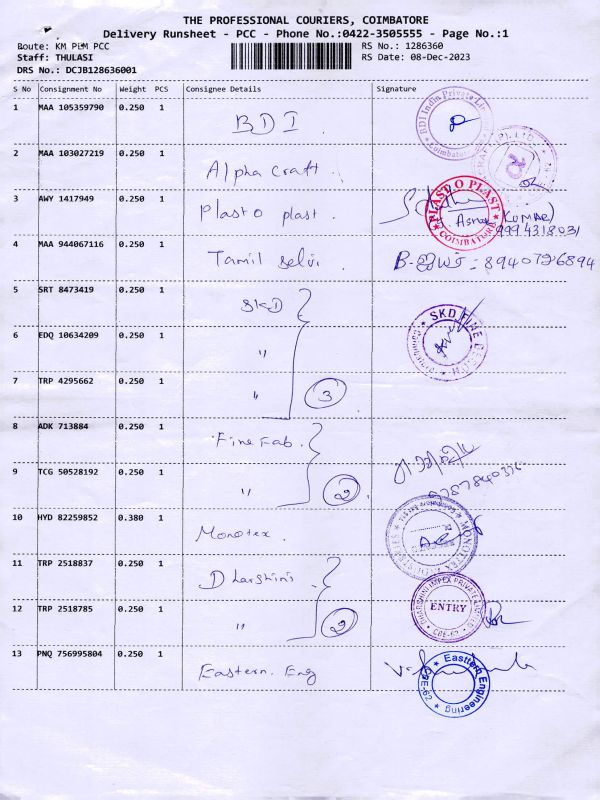 THE PROFESSIONAL COURIERS, COIMBATORE
Delivery Runsheet - PCC - Phone No.:0422-3505555 - Page No.:1
Route: KM PLM PCC
RS No.: 1286360
Staff: THULASI
RS Date: 08-Dec-2023
DRS No.: DCJB128636001
S No Consignment No Weight PCS Consignee Details Signature
1 MAA 105359790 0.250 1 BDI
BDI India Private Ltd
Coimbatore
2 MAA 103027219 0.250 1 Alpha Craft.
3 AWY 1417949 0.250 1 Plasto plast.
PLAST O PLAST
COIMBATORE
KUMAR)
9994318031
4 MAA 944067116 0.250 1 Tamil selvi.
8940726894
5 SRT 8473419 0.250 1 SKD
SKD FINE
6 EDQ 10634209 0.250 1 "
7 TRP 4295662 0.250 1 " 3
8 ADK 713884 0.250 1 Fine Fab.
9 TCG 50528192 0.250 1 " 2
10 HYD 82259852 0.380 1 Monotex.
11 TRP 2518837 0.250 1 Dharshini
DHARSHINI IMPEX PRIVATE LIMITED
ENTRY
CBE-62
12 TRP 2518785 0.250 1 " 2
13 PNQ 756995804 0.250 1 Eastern. Eng
Eastern Engineering
CBE-62